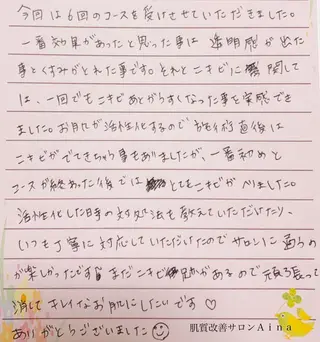 今回は6回のコースを受けさせていただきました。
一番効果があったと思った事は 透明感が出た
事とくすみがとれた事です。それとニキビに関して
は、一回でもニキビあとがうすくなった事を実感でき
ました。お肌が活性化するので お施術直後は
ニキビがでてきちゃう事もありましたが、一番初めと
コースが終わった後では とてもニキビが へりました。
活性化した時の対処法も教えていただけたり、
いつも丁寧に対応していただけたのでサロンに通うの
が楽しかったです まだニキビ があるので 頑張って
消して キレイなお肌にしたいです♡
ありがとうございました☺
肌質改善サロンAina